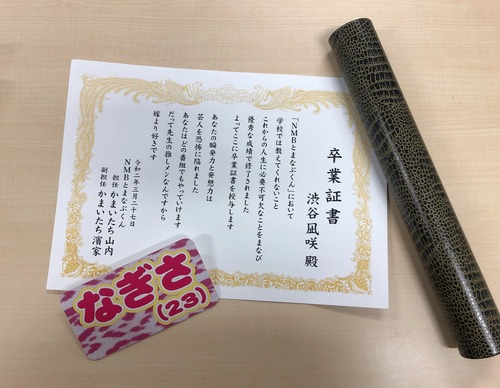 卒業証書
渋谷凪咲 殿
「NMBとまなぶくん」において
学校では教えてくれないこと
これからの人生に必要不可欠なことをまなび
優秀な成績で修了されました
よってここに卒業証書を授与します
あなたの瞬発力と発想力は
芸人を恐怖に陥れました
あなたはどの番組でもやっていけます
だって先生の推しメンなんですから
嫁より好きです
令和二年三月二十七日
NMBとまなぶくん
担任 かまいたち 山内
副担任 かまいたち 濱家
なぎさ
(23)